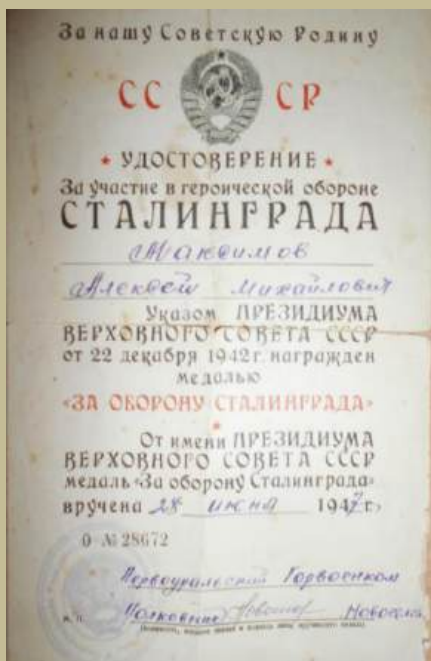 За нашу Советскую Родину
СС СР
УДОСТОВЕРЕНИЕ
За участие в героической обороне
СТАЛИНГРАДА
Максимов
Алексей Михайлович
Указом ПРЕЗИДИУМА
ВЕРХОВНОГО СОВЕТА СССР
от 22 декабря 1942 г. награжден
медалью
«ЗА ОБОРОНУ СТАЛИНГРАДА»
От имени ПРЕЗИДИУМА
ВЕРХОВНОГО СОВЕТА СССР
медаль «За оборону Сталинграда»
вручена 28 июня 1947 г.
О № 28672
Первоуральский Горвоенком
М. П. Полковник